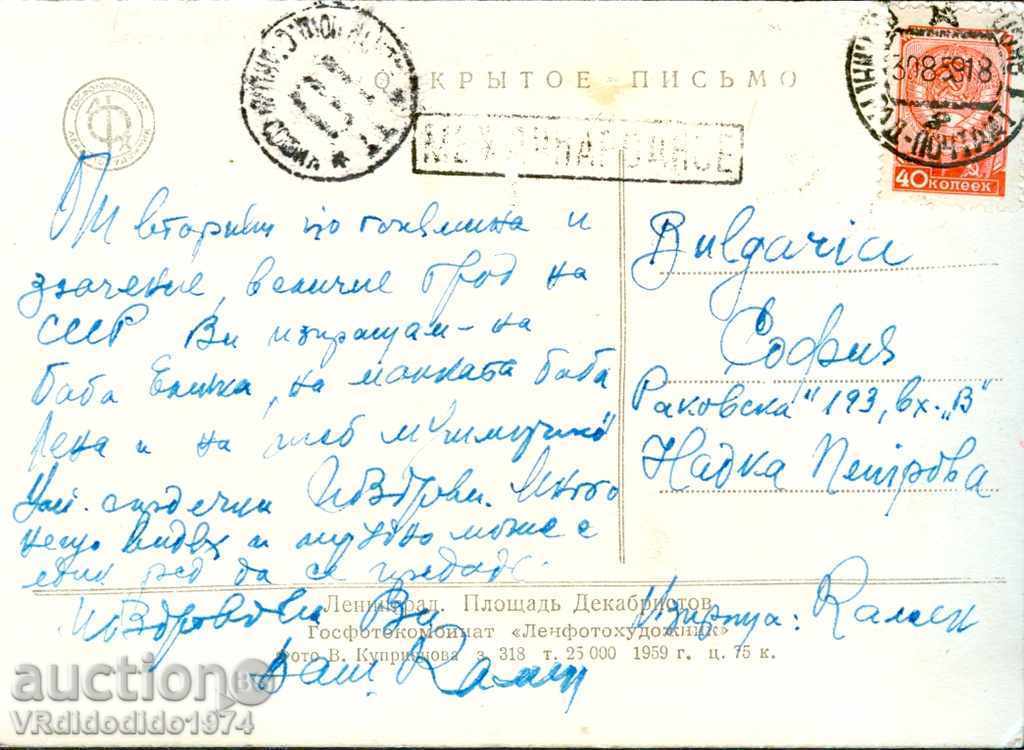 ОТКРЫТОЕ ПИСЬМО
МЕЖДУНАРОДНОЕ
30859 18
40 копеек
От втория по големина и
значение, величие град на
СССР Ви изпращам – на
баба Еленка, на малката баба
Лена и на теб
сърдечни поздрави. Много
нещо видях и трудно може с
един ред да се предаде.
Поздравявам Ви
Ваш: Камен
Bulgaria
София
Раковска" 193, вх. „В"
Надка Петрова
Изпраща: Камен
Ленинград. Площадь Декабристов
Госфотокомбинат «Ленфотохудожник»
Фото В. Куприянова з. 318 т. 25 000 1959 г. ц. 75 к.
auction BG
VRdidodido1974